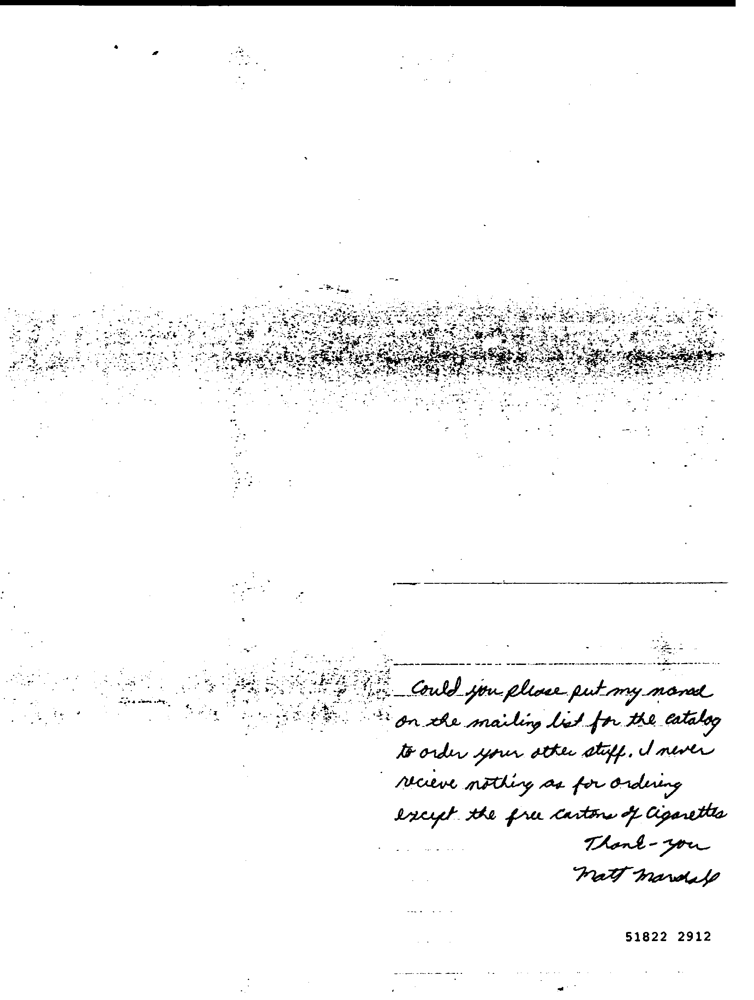 Could you please put my named
on the mailing list for the catalog
to order your other stuff. I never
recieve nothing as for ordering
except the free cartons of Cigarettes
Thank-you
Matt
51822 2912